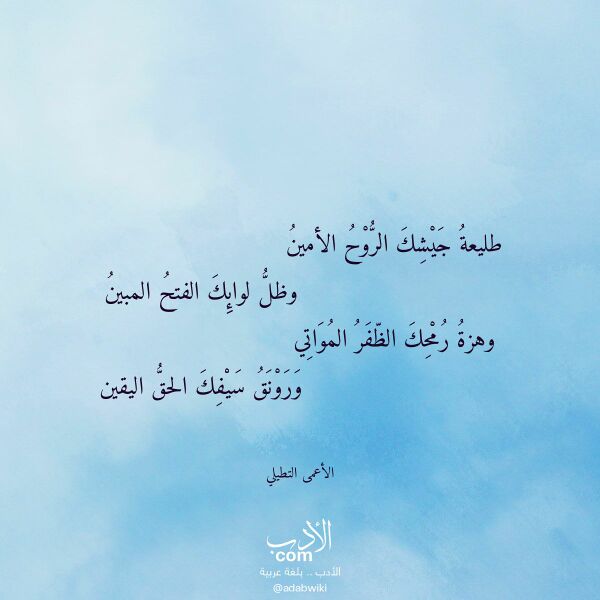 طليعةُ جَيْشِكَ الرُّوْحُ الأمينُ
وظلُّ لوائِكَ الفتحُ المبينُ
وهزةُ رُمْحِكَ الظّفَرُ المُوَاتِي
وَرَوْنَقُ سَيْفِكَ الحقُّ اليقين
الأعمى التطيلي
الأدب
com
الأدب .. بلغة عربية
@adabwiki